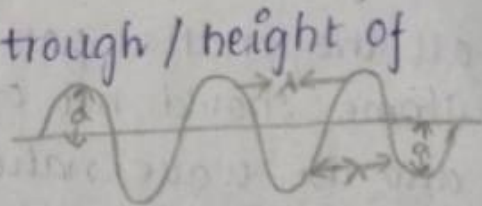 trough / height of
a
λ
λ
a